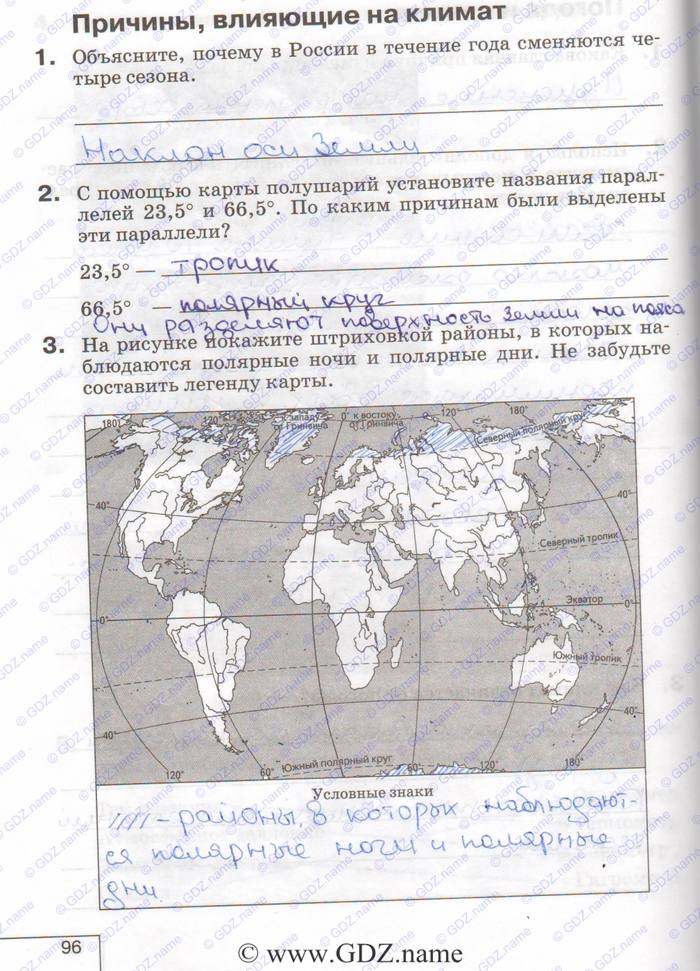 Причины, влияющие на климат
1. Объясните, почему в России в течение года сменяются че-
тыре сезона.
Наклон оси Земли
2. С помощью карты полушарий установите названия парал-
лелей 23,5° и 66,5°. По каким причинам были выделены
эти параллели?
23,5° — тропик
66,5° — полярный круг
Они разделяют поверхность Земли на пояса
3. На рисунке покажите штриховкой районы, в которых на-
блюдаются полярные ночи и полярные дни. Не забудьте
составить легенду карты.
180° 120° к западу 0° к востоку 120° 180°
от Гринвича от Гринвича
Северный полярный круг
40° 40°
Северный тропик
Экватор
0° 0°
Южный тропик
40° 40°
Южный полярный круг
120° 60° 60° 120°
Условные знаки
- районы, в которых наблюдают-
ся полярные ночи и полярные
дни.
96
© www.GDZ.name